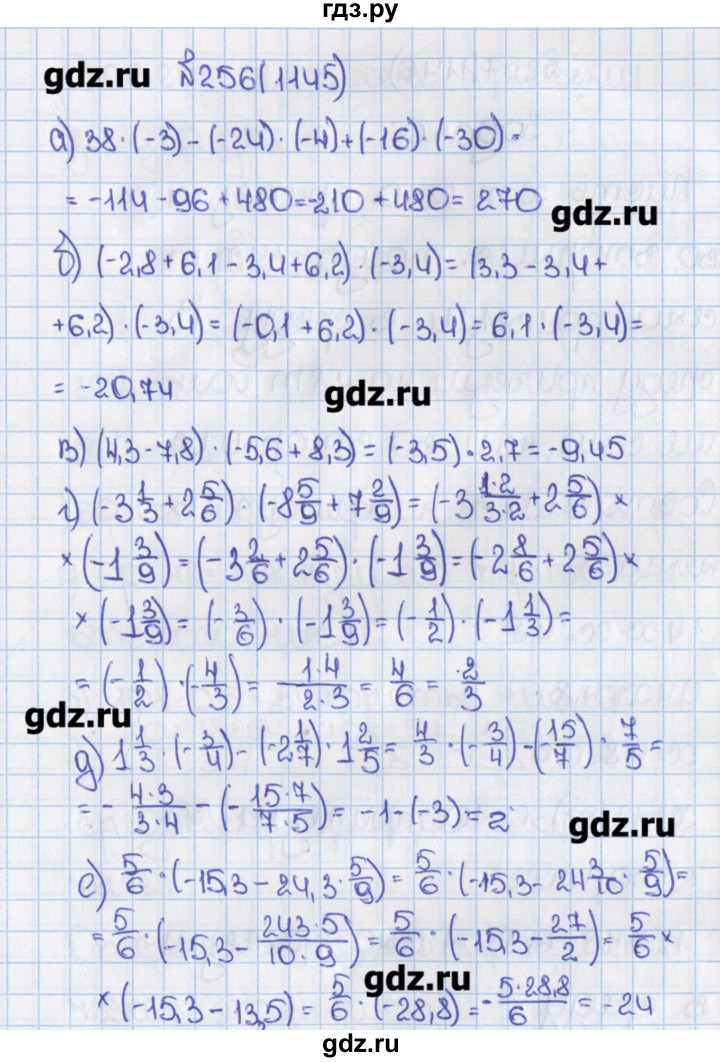 гдз.ру
gdz.ru №256(1145)
а) 38·(-3)-(-24)·(-4)+(-16)·(-30)=
= -114-96+480=-210+480= 270
gdz.ru
б) (-2,8+6,1-3,4+6,2)·(-3,4)= (3,3-3,4+
+6,2)·(-3,4)= (-0,1+6,2)·(-3,4)=6,1·(-3,4)=
= -20,74
gdz.ru
в) (4,3-7,8)·(-5,6+8,3)= (-3,5)·2,7=-9,45
г) (-3 1/3+2 5/6)·(-8 5/9+7 2/9)=(-3 1·2/3·2+2 5/6)×
×(-1 3/9)=(-3 2/6+2 5/6)·(-1 3/9)=(-2 8/6+2 5/6)×
×(-1 3/9)= (-3/6)·(-1 3/9)=(-1/2)·(-1 1/3)=
=(-1/2)·(-4/3)= 1·4/2·3= 4/6= 2/3
gdz.ru
д) 1 1/3·(-3/4)-(-2 1/7)·1 2/5= 4/3·(-3/4)-(15/7)·7/5=
=-4·3/3·4-(-15·7/7·5)= -1-(-3)=2
gdz.ru
е) 5/6·(-15,3-24,3·5/9)= 5/6·(-15,3-24 3/10·5/9)=
=5/6·(-15,3-243·5/10·9)=5/6·(-15,3-27/2)=5/6×
×(-15,3-13,5)= 5/6·(-28,8)=-5·28,8/6=-24
gdz.ru
гдз.ру